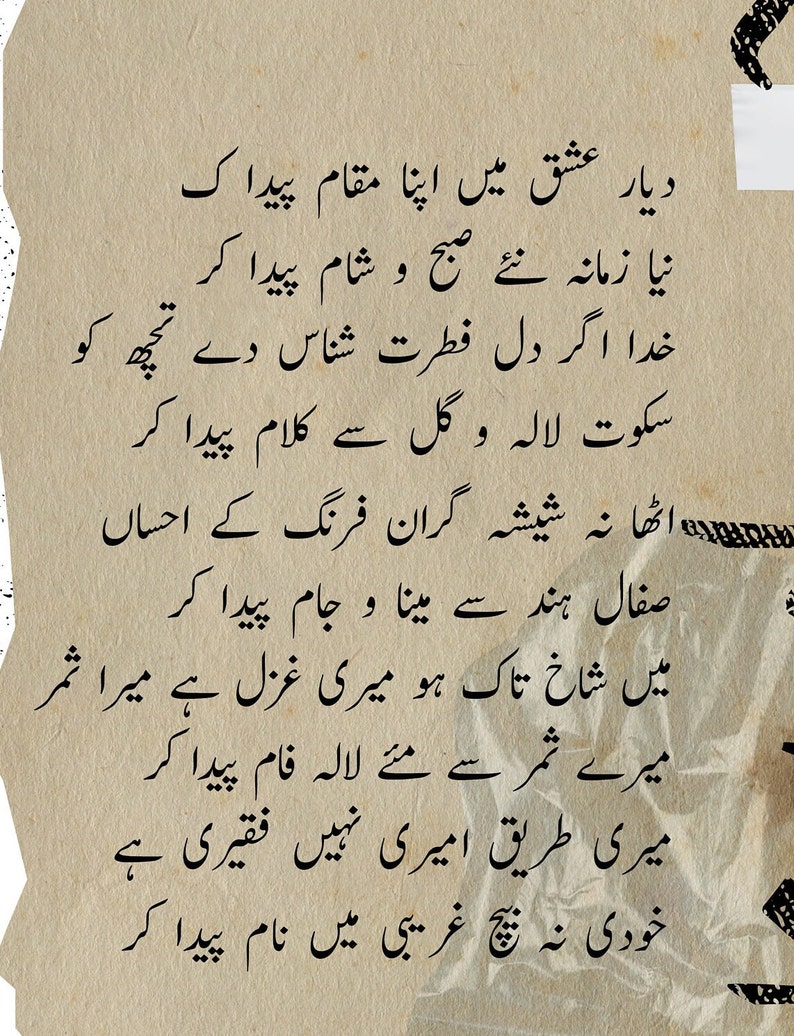 دیار عشق میں اپنا مقام پیدا ک
نیا زمانہ نئے صبح و شام پیدا کر
خدا اگر دل فطرت شناس دے تجھ کو
سکوت لالہ و گل سے کلام پیدا کر
اٹھا نہ شیشہ گران فرنگ کے احساں
صفال ہند سے مینا و جام پیدا کر
میں شاخ تاک ہو میری غزل ہے میرا ثمر
میرے ثمر سے مئے لالہ فام پیدا کر
میری طریق امیری نہیں فقیری ہے
خودی نہ بیچ غریبی میں نام پیدا کر